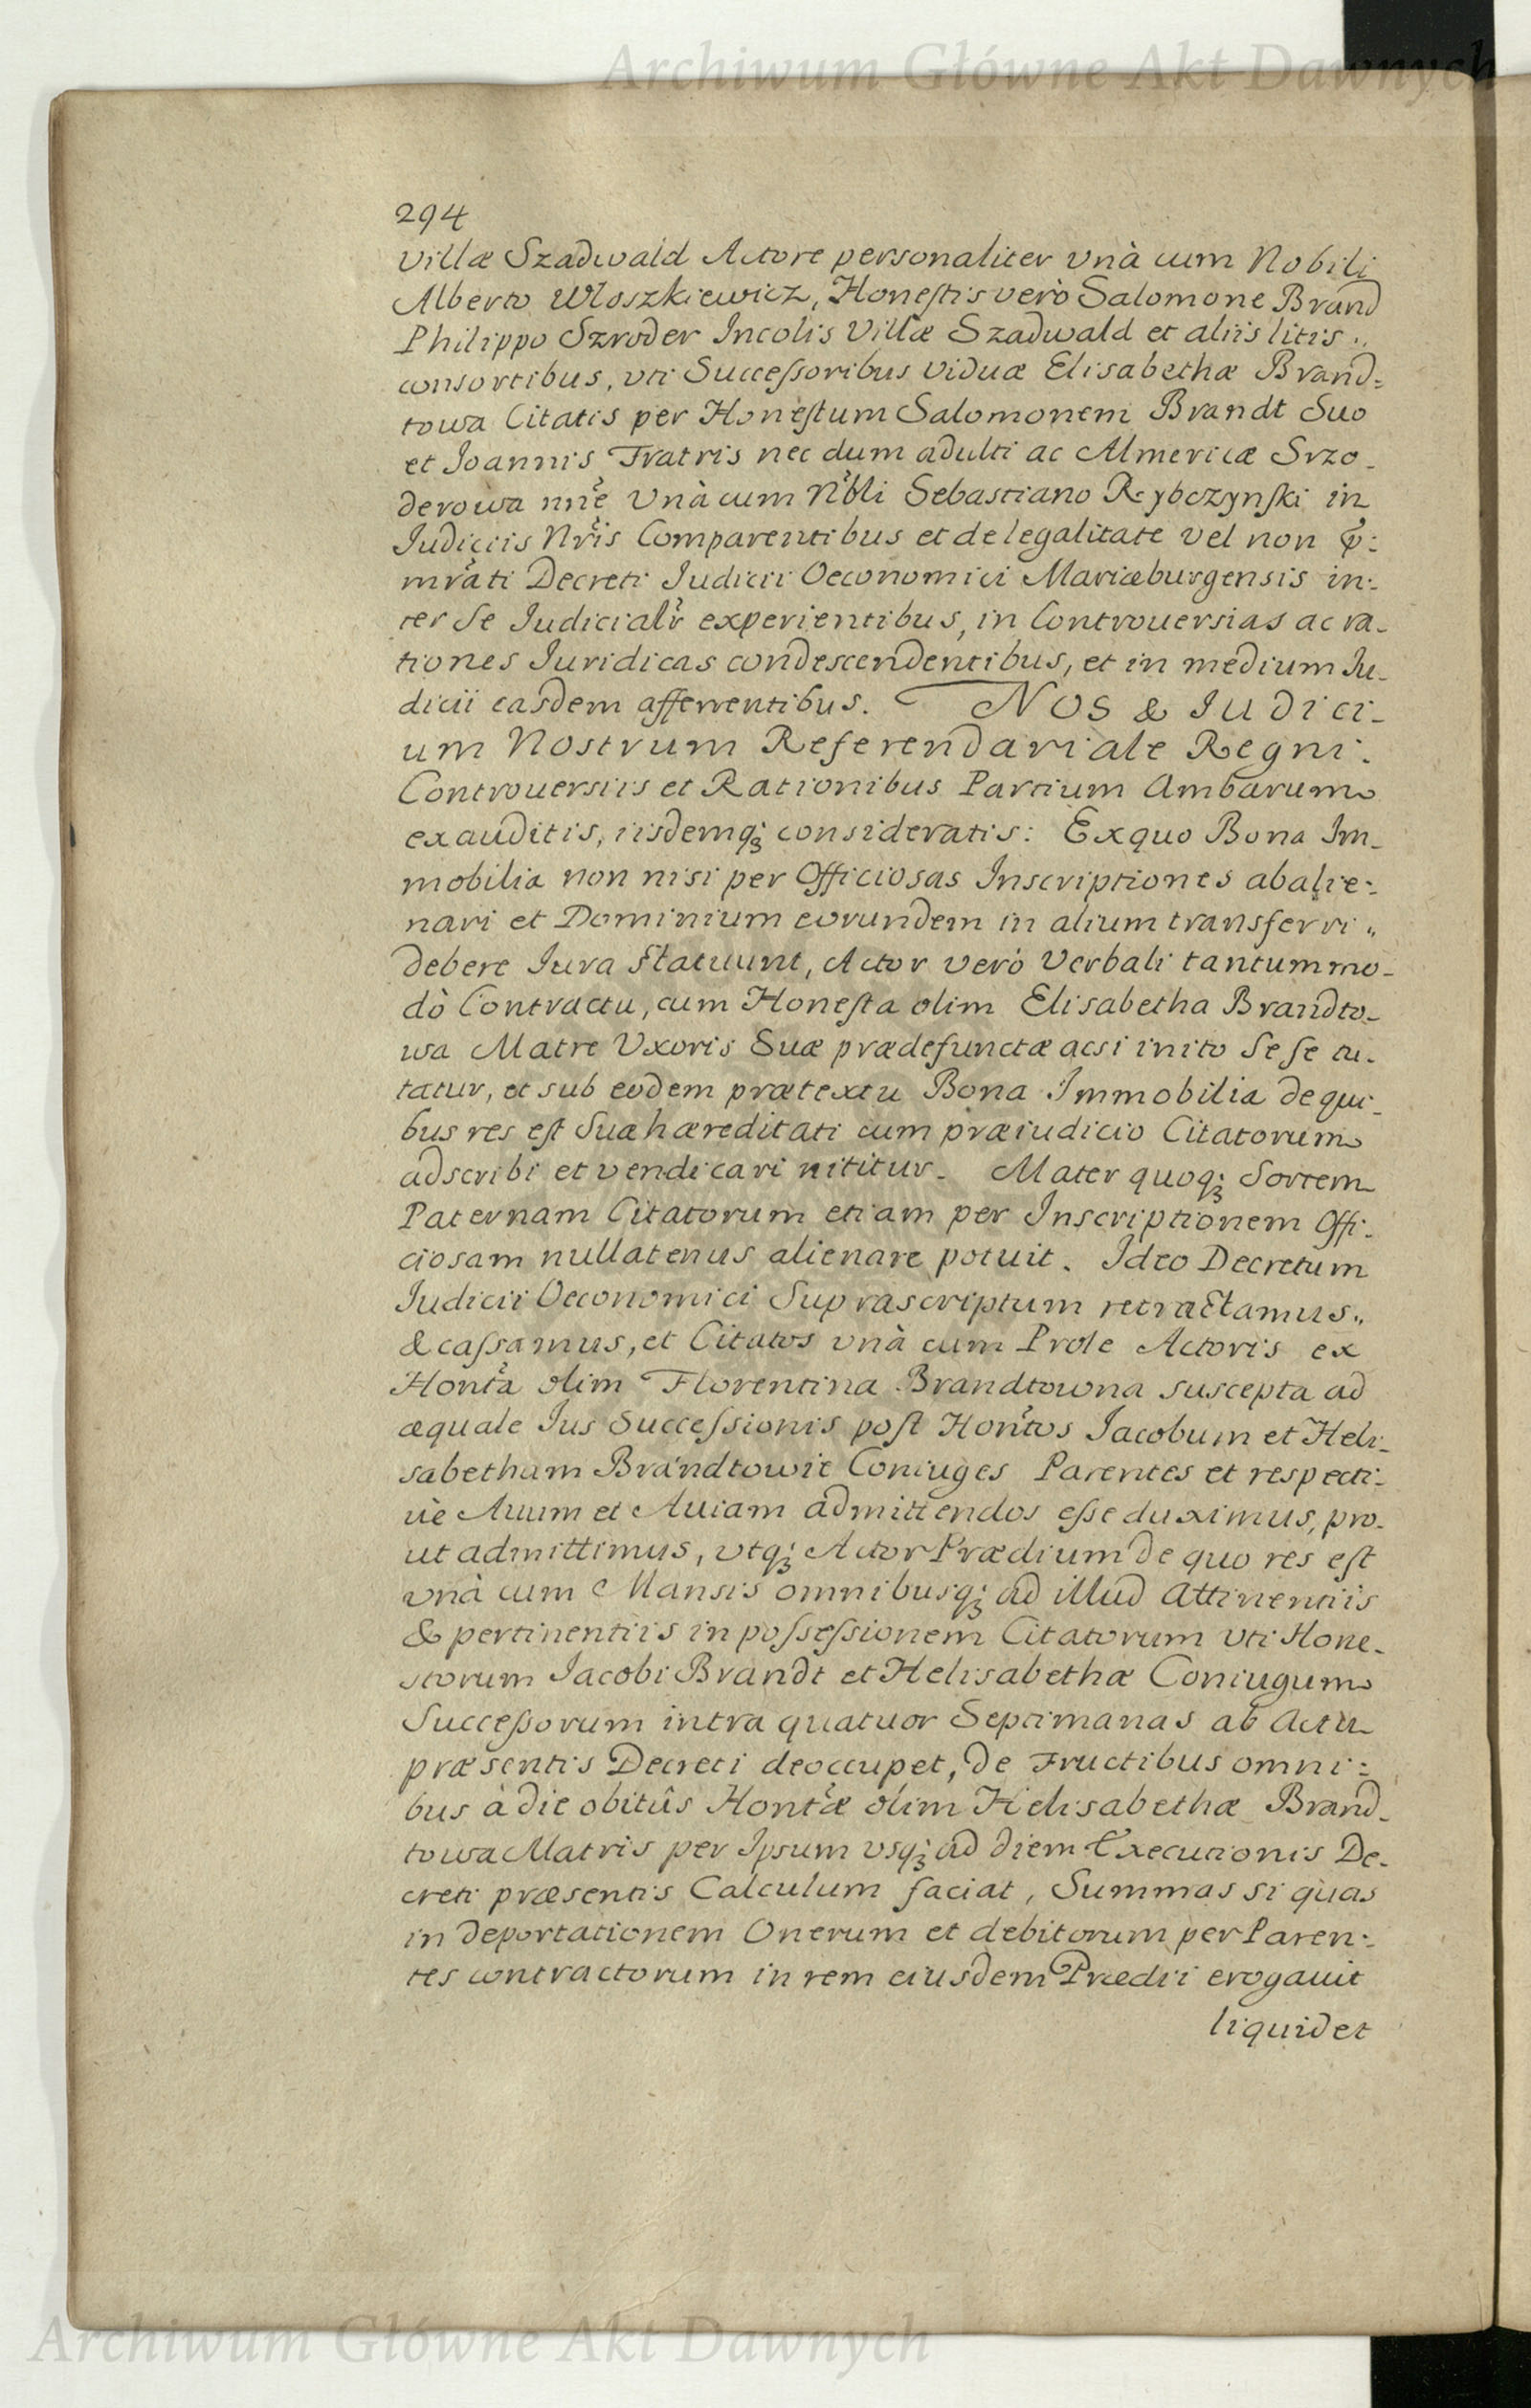 Archiwum Główne Akt Dawnych
294
Villæ Szadwald Actore personaliter vnà cum Nobili
Alberto Włoszkiewicz, Honeſtis verò Salomone Brand
Philippo Szroder Incolis Villæ Szadwald et aliis litis „
consortibus, vti Succeſsoribus Viduæ Elisabethæ Brand=
towa Citatis per Honeſtum Salomonem Brandt Suo
et Joannis Fratris nec dum adulti ac Almericæ Srzo-
derowa nn̄e Vnà cum Nb̄li Sebastiano Rybczynſki in
Judiciis Nr̄is Comparentibus et de legalitate vel non
mr̄ati Decreti Judicii Oeconomici Mariæburgensis in:
ter Se Judicialr̄ experientibus, in Controuersias ac ra-
tiones Juridicas condescendentibus, et in medium Ju-
dicii easdem afferrentibus. NOS & Judici-
um Nostrum Referendariale Regni.
Controuersiis et Rationibus Partium Ambarum
exauditis, iisdemq; consideratis: Exquo Bona Im-
mobilia non nisi per Officiosas Inscriptiones abalie:
nari et Dominium eorundem in alium transferri „
debere Jura Statuunt, Actor verò Verbali tantummo-
dò Contractu, cum Honeſta olim Elisabetha Brandto-
wa Matre Vxoris Suæ prædefunctæ acsi inito Se se tu-
tatur, et sub eodem prætextu Bona Immobilia de qui-
bus res eſt Suæ hæreditati cum præiudicio Citatorum
adscribi et vendicari nititur. Mater quoq; Sortem
Paternam Citatorum etiam per Inscriptionem Offi:
ciosam nullatenus alienare potuit. Ideo Decretum
Judicii Oeconomici Suprascriptum retractamus „
& caſsamus, et Citatos vnà cum Prole Actoris ex
Hont̄a olim Florentina Brandtowna suscepta ad
æquale Jus Succeſsionis poſt Hont̄os Jacobum et Heli-
sabetham Brandtowie Coniuges Parentes et respecti-
uè Auum et Auiam admittendos eſse duximus, pro-
ut admittimus, vtq; Actor Prædium de quo res eſt
vnà cum Mansis omnibusq; ad illud Attinentiis
& pertinentiis in poſseſsionem Citatorum vti Hone-
storum Jacobi Brandt et Helisabethæ Coniugum
Succeſsorum intra quatuor Septimanas ab Actu
præsentis Decreti deoccupet, de Fructibus omni:
bus à die obitûs Hont̄æ olim Helisabethæ Brand-
towa Matris per Ipsum vsq; ad diem Executionis De-
creti præsentis Calculum faciat, Summas si quas
in deportationem Onerum et debitorum per Paren:
tes contractorum in rem eiusdem Prædii erogauit
liquidet
Archiwum Główne Akt Dawnych